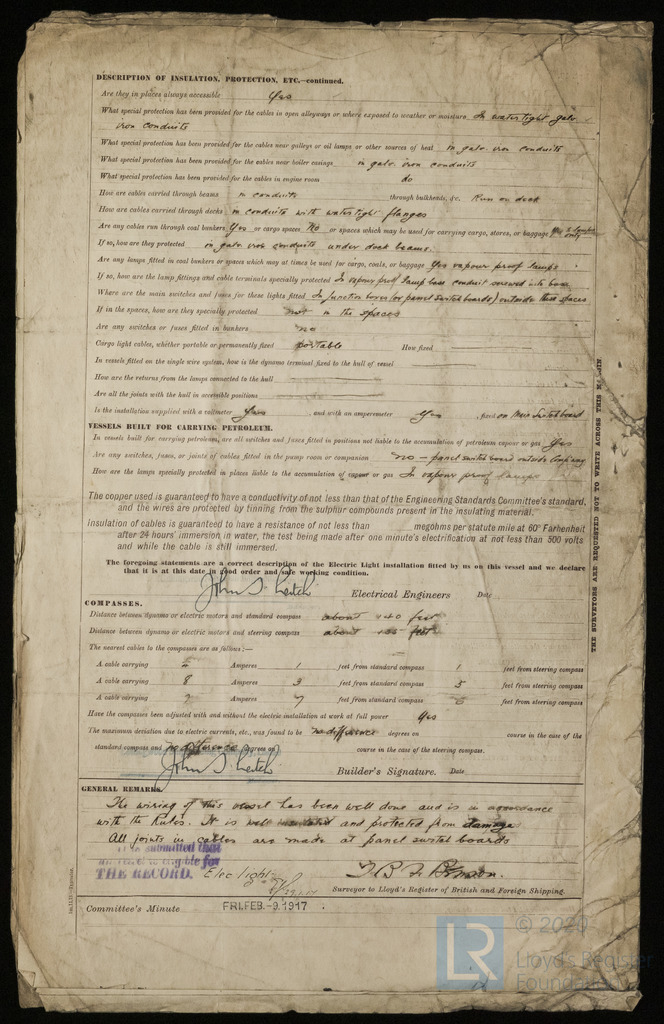 DESCRIPTION OF INSULATION, PROTECTION, ETC.—continued.
Are they in places always accessible Yes
What special protection has been provided for the cables in open alleyways or where exposed to weather or moisture In watertight galv
iron conduits
What special protection has been provided for the cables near galleys or oil lamps or other sources of heat in galv. iron conduits
What special protection has been provided for the cables near boiler casings in galv. iron conduits
What special protection has been provided for the cables in engine room do
How are cables carried through beams in conduits through bulkheads, &c. Run on deck
How are cables carried through decks in conduits with watertight flanges
Are any cables run through coal bunkers Yes or cargo spaces No or spaces which may be used for carrying cargo, stores, or baggage Yes only
If so, how are they protected in galv. iron conduits under deck beams.
Are any lamps fitted in coal bunkers or spaces which may at times be used for cargo, coals, or baggage Yes vapour proof lamps
If so, how are the lamp fittings and cable terminals specially protected In vapour proof lamp base conduit screwed into base
Where are the main switches and fuses for these lights fitted In junction boxes (or panel switch boards) outside these spaces
If in the spaces, how are they specially protected not in the spaces
Are any switches or fuses fitted in bunkers no
Cargo light cables, whether portable or permanently fixed portable How fixed
In vessels fitted on the single wire system, how is the dynamo terminal fixed to the hull of vessel
How are the returns from the lamps connected to the hull
Are all the joints with the hull in accessible positions
Is the installation supplied with a voltmeter Yes , and with an amperemeter Yes , fixed on Main Switchboard
VESSELS BUILT FOR CARRYING PETROLEUM.
In vessels built for carrying petroleum, are all switches and fuses fitted in positions not liable to the accumulation of petroleum vapour or gas Yes
Are any switches, fuses, or joints of cables fitted in the pump room or companion no – panel switch board outside Compan'y
How are the lamps specially protected in places liable to the accumulation of vapour or gas In vapour proof lamps
The copper used is guaranteed to have a conductivity of not less than that of the Engineering Standards Committee's standard,
and the wires are protected by tinning from the sulphur compounds present in the insulating material.
Insulation of cables is guaranteed to have a resistance of not less than megohms per statute mile at 60° Fahrenheit
after 24 hours' immersion in water, the test being made after one minute's electrification at not less than 500 volts
and while the cable is still immersed.
The foregoing statements are a correct description of the Electric Light installation fitted by us on this vessel and we declare
that it is at this date in good order and safe working condition.
John S. Leitch Electrical Engineers Date
COMPASSES.
Distance between dynamo or electric motors and standard compass about 140 feet
Distance between dynamo or electric motors and steering compass about feet
The nearest cables to the compasses are as follows:—
A cable carrying 4 Amperes 1 feet from standard compass 1 feet from steering compass
A cable carrying 8 Amperes 3 feet from standard compass 5 feet from steering compass
A cable carrying Amperes 7 feet from standard compass feet from steering compass
Have the compasses been adjusted with and without the electric installation at work at full power Yes
The maximum deviation due to electric currents, etc., was found to be no difference degrees on course in the case of the
standard compass and no difference degrees on course in the case of the steering compass.
John S. Leitch Builder's Signature. Date
GENERAL REMARKS
The wiring of this vessel has been well done and is in accordance
with the Rules. It is well insulated and protected from damage
All joints in cables are made at panel switch boards
It is submitted that
this vessel is eligible for
THE RECORD. Elec light
Surveyor to Lloyd's Register of British and Foreign Shipping.
Committee's Minute FRI. FEB. -9. 1917
THE SURVEYORS ARE REQUESTED NOT TO WRITE ACROSS THIS MARGIN
LR
© 2020
Lloyd's Register
Foundation